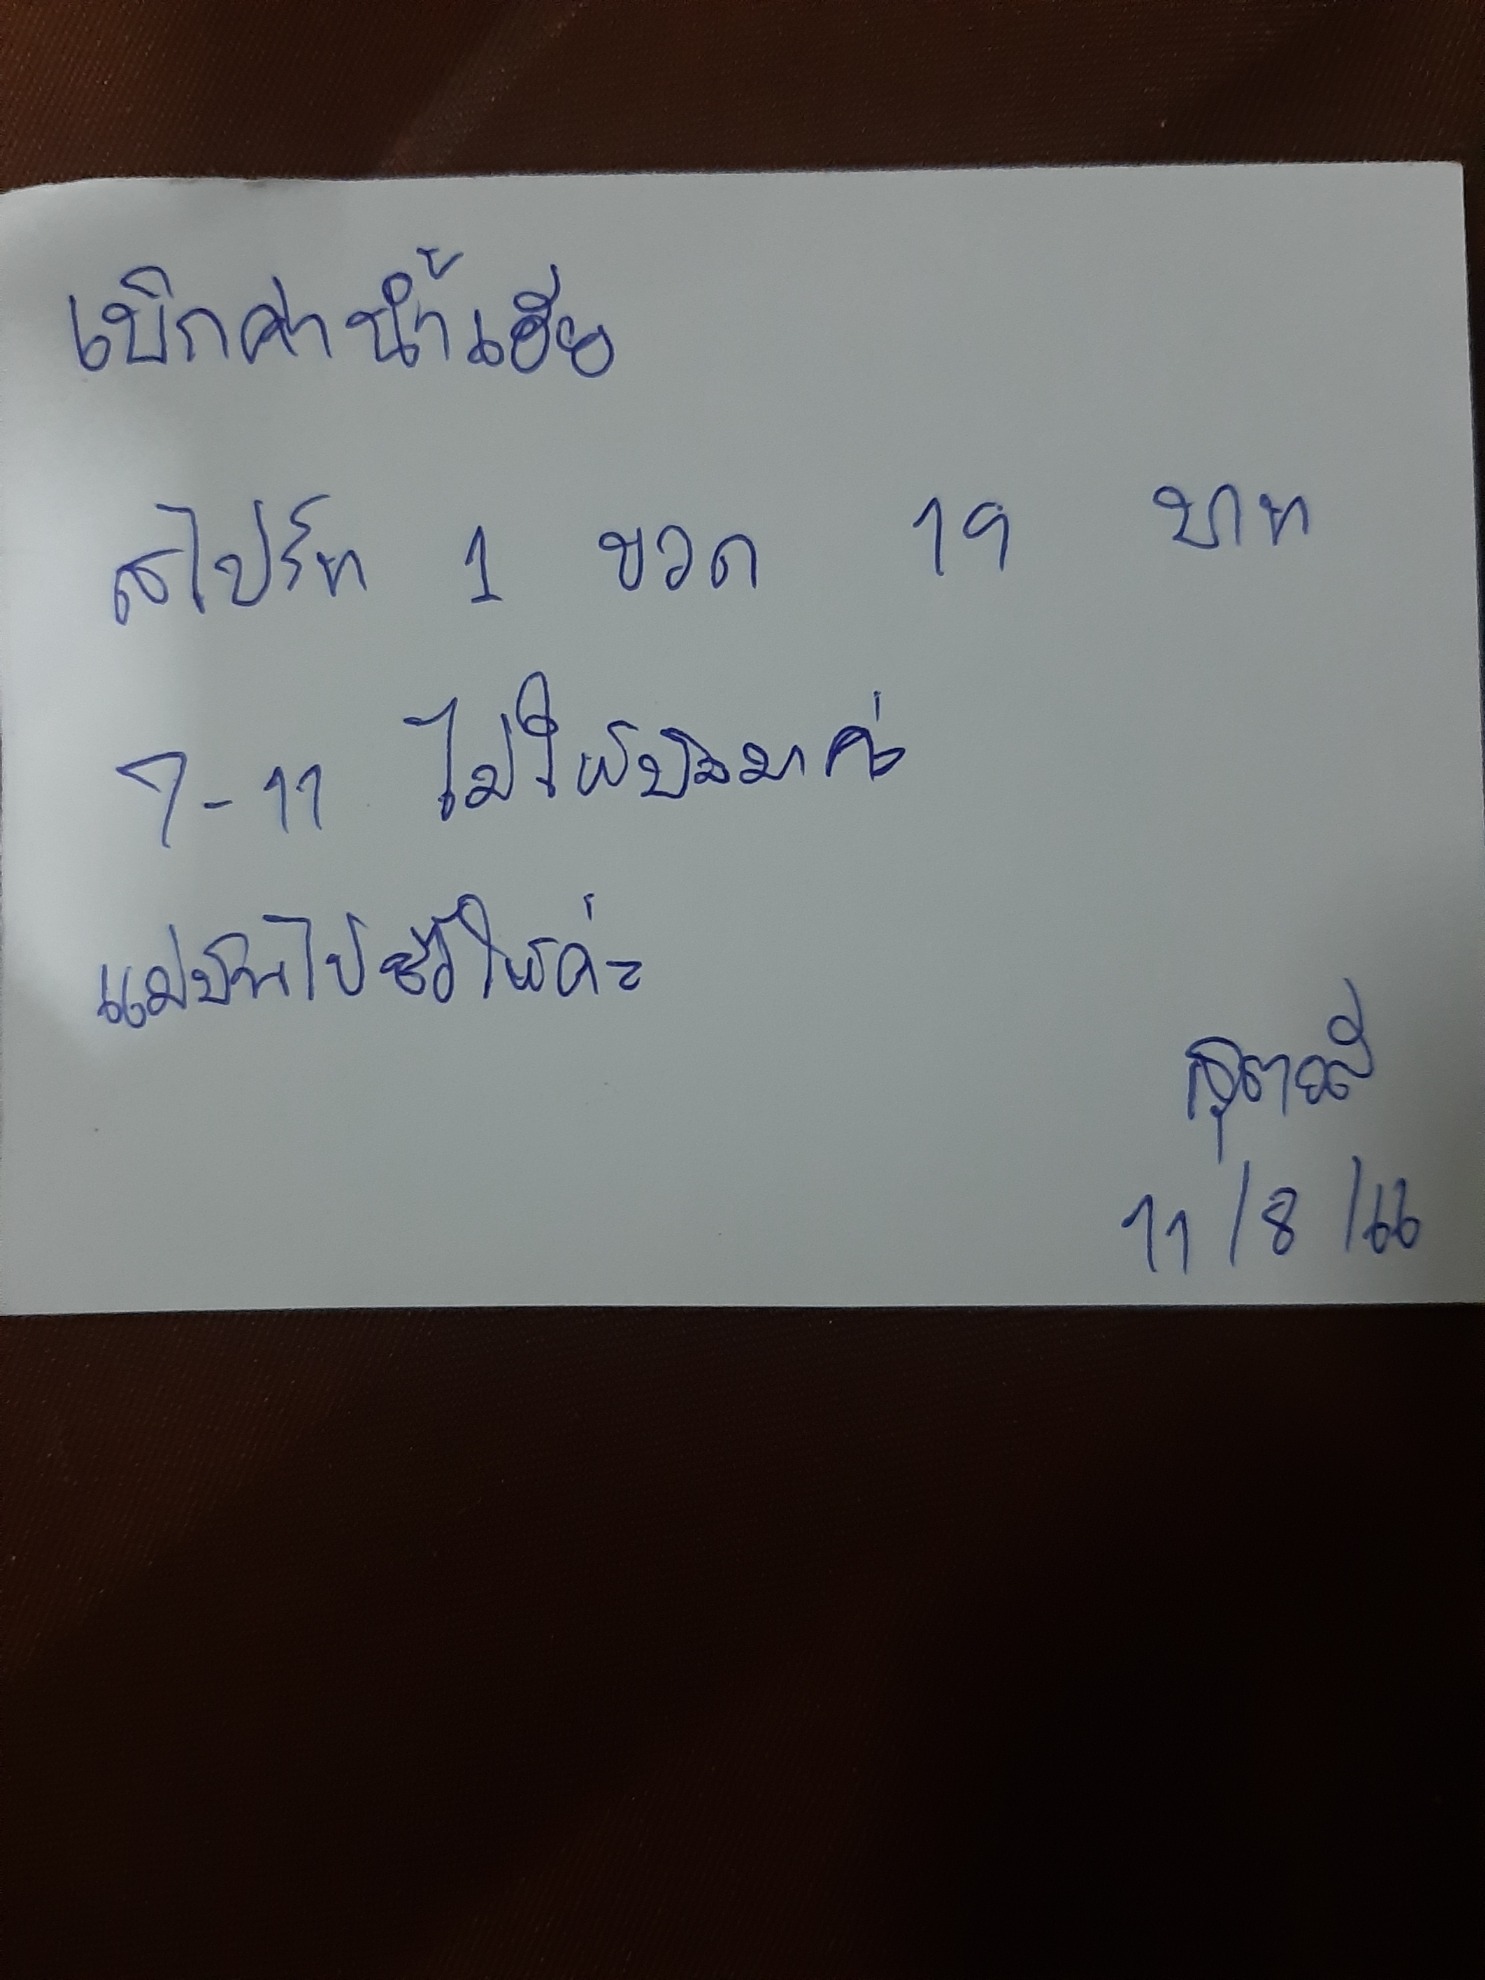 เบิกค่าน้ำเฮีย
สไปร์ท 1 ขวด 19 บาท
7-11 ไม่ให้บิลมาค่ะ
แม่บ้านไปซื้อให้ค่ะ
สุดาวลี
11/8/66